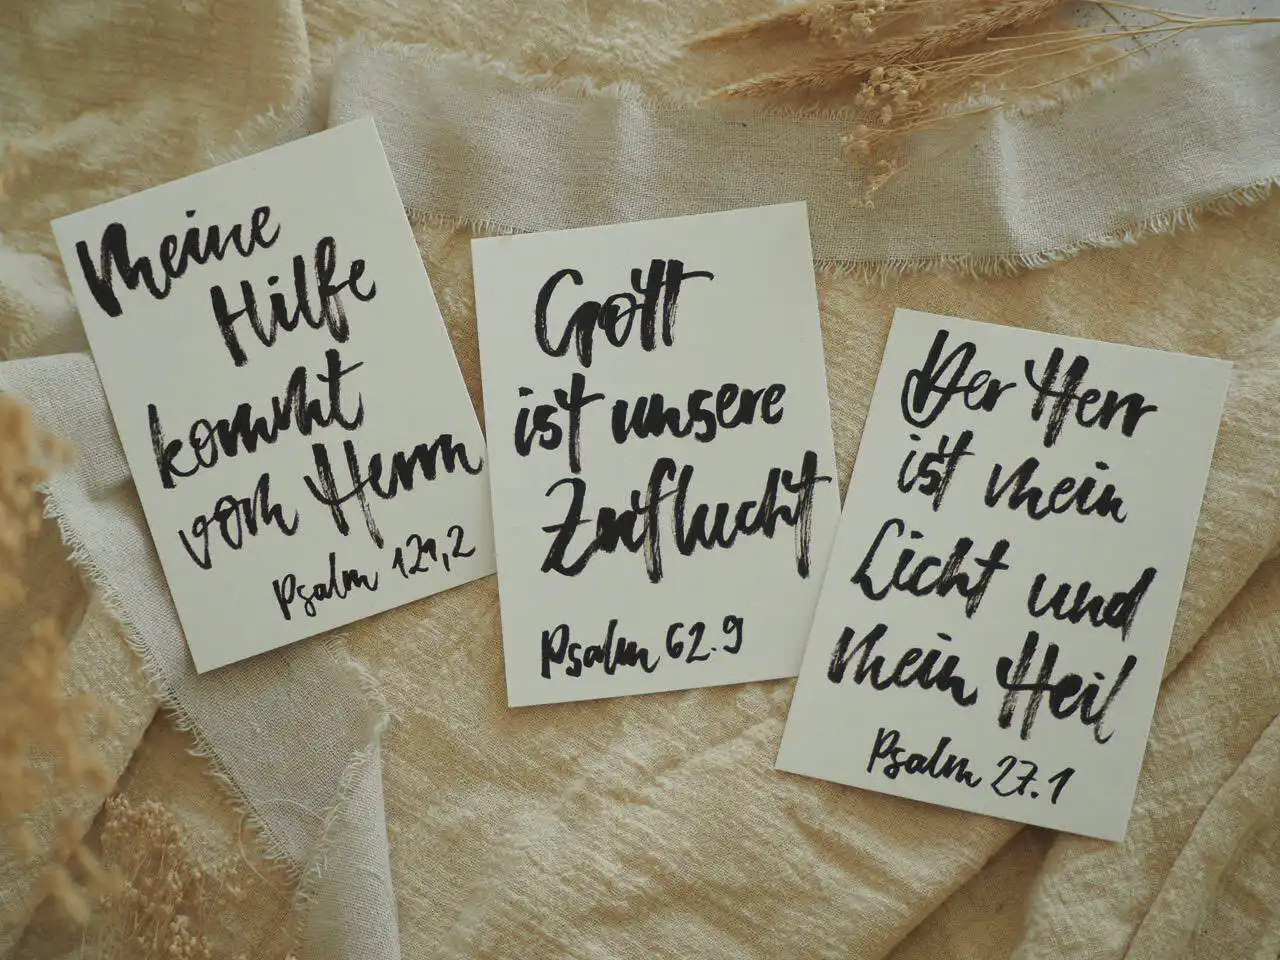 Meine
Hilfe
kommt
vom Herrn
Psalm 121,2
Gott
ist unsere
Zuflucht
Psalm 62.9
Der Herr
ist mein
Licht und
mein Heil
Psalm 27.1